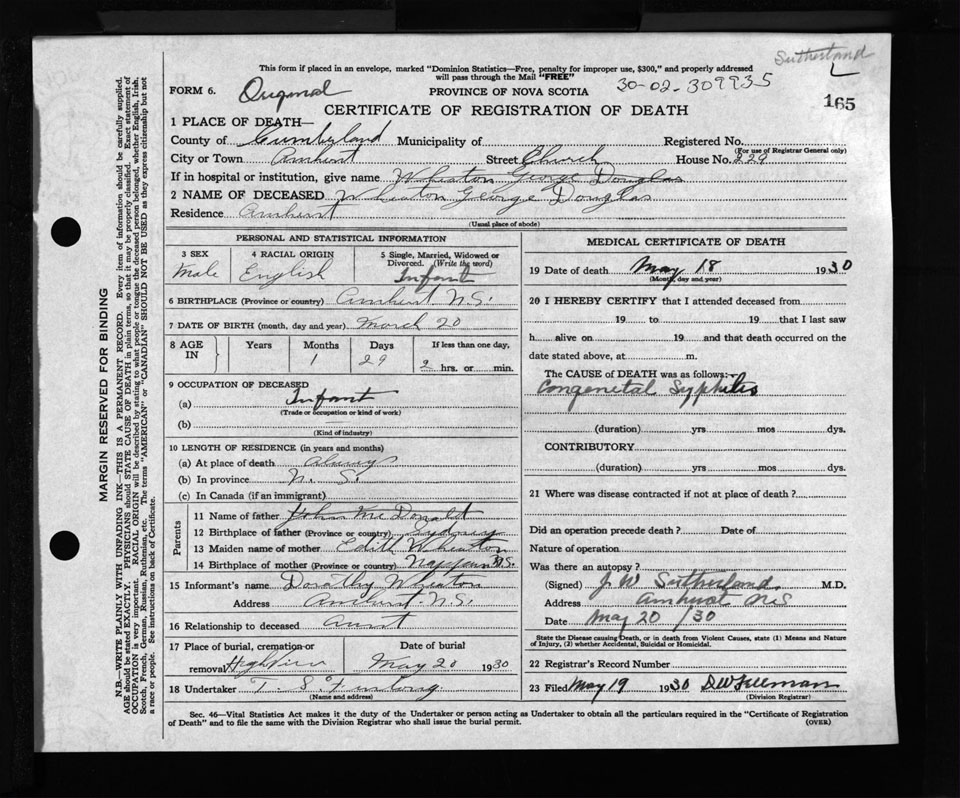 Sutherland
L
This form if placed in an envelope, marked "Dominion Statistics—Free, penalty for improper use, $300," and properly addressed
will pass through the Mail "FREE"
FORM 6. Original PROVINCE OF NOVA SCOTIA 30-02-309935
CERTIFICATE OF REGISTRATION OF DEATH 165
1 PLACE OF DEATH—
County of Cumberland Municipality of Registered No.
(For use of Registrar General only)
City or Town Amherst Street Church House No. 229
If in hospital or institution, give name Wheaton George Douglas
2 NAME OF DECEASED Wheaton George Douglas
Residence Amherst
(Usual place of abode)
PERSONAL AND STATISTICAL INFORMATION
3 SEX Male
4 RACIAL ORIGIN English
5 Single, Married, Widowed or Divorced. (Write the word) Infant
6 BIRTHPLACE (Province or country) Amherst N.S.
7 DATE OF BIRTH (month, day and year) March 20
8 AGE IN Years Months 1 Days 29 If less than one day, 2 hrs. or min.
9 OCCUPATION OF DECEASED
(a) Infant
(Trade or occupation or kind of work)
(b)
(Kind of industry)
10 LENGTH OF RESIDENCE (in years and months)
(a) At place of death always
(b) In province N. S.
(c) In Canada (if an immigrant)
Parents
11 Name of father John McDonald
12 Birthplace of father (Province or country) Sydney
13 Maiden name of mother Edith Wheaton
14 Birthplace of mother (Province or country) Nappan N.S.
15 Informant's name Dorothy Wheaton
Address Amherst N.S.
16 Relationship to deceased Aunt
17 Place of burial, cremation or removal Highview
Date of burial May 20 1930
18 Undertaker T. S.
(Name and address)
MEDICAL CERTIFICATE OF DEATH
19 Date of death May 18 1930
(Month, day and year)
20 I HEREBY CERTIFY that I attended deceased from
19 to 19 that I last saw
h alive on 19 and that death occurred on the
date stated above, at m.
The CAUSE of DEATH was as follows:
Congenetal Syphilis
(duration) yrs mos dys.
CONTRIBUTORY
(duration) yrs mos dys.
21 Where was disease contracted if not at place of death?
Did an operation precede death? Date of
Nature of operation
Was there an autopsy?
(Signed) J. W Sutherland M.D.
Address Amherst N.S
Date May 20 /30
State the Disease causing Death, or in death from Violent Causes, state (1) Means and Nature
of Injury, (2) whether Accidental, Suicidal or Homicidal.
22 Registrar's Record Number
23 Filed May 19 1930
(Division Registrar)
Sec. 46—Vital Statistics Act makes it the duty of the Undertaker or person acting as Undertaker to obtain all the particulars required in the "Certificate of Registration
of Death" and to file the same with the Division Registrar who shall issue the burial permit. (OVER)
MARGIN RESERVED FOR BINDING
N.B.—WRITE PLAINLY WITH UNFADING INK—THIS IS A PERMANENT RECORD. Every item of information should be carefully supplied.
AGE should be stated EXACTLY. PHYSICIANS should STATE CAUSE OF DEATH in plain terms, so that it may be properly classified. Exact statement of
OCCUPATION is very important. RACIAL ORIGIN will be described by stating to what people or tongue the deceased person belonged, whether English, Irish,
Scotch, French, German, Russian, Ruthenian, etc. The terms "AMERICAN" or "CANADIAN" SHOULD NOT BE USED as they express citizenship but not
a race or people. See instructions on back of Certificate.